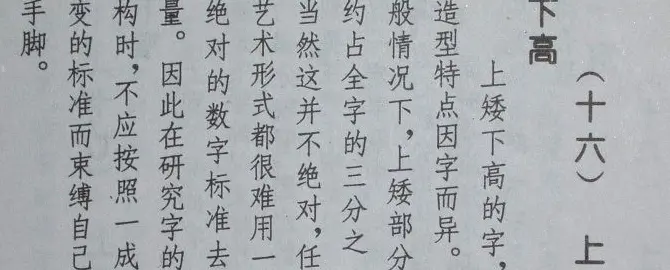 （十六） 上
下高
上矮下高的字，
造型特点因字而异。
般情况下，上矮部分
约占全字的三分之
当然这并不绝对，任
艺术形式都很难用一
绝对的数字标准去
量。因此在研究字的
构时，不应按照一成
变的标准而束缚自己
手脚。